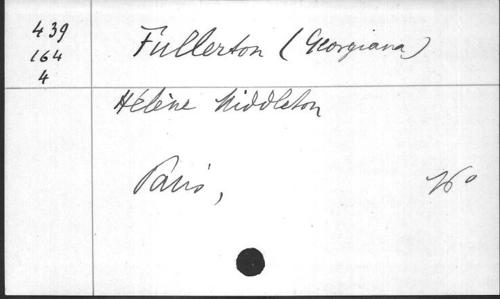 439
164
4
Fullerton (Georgiana)
Hélène Middleton
Paris,